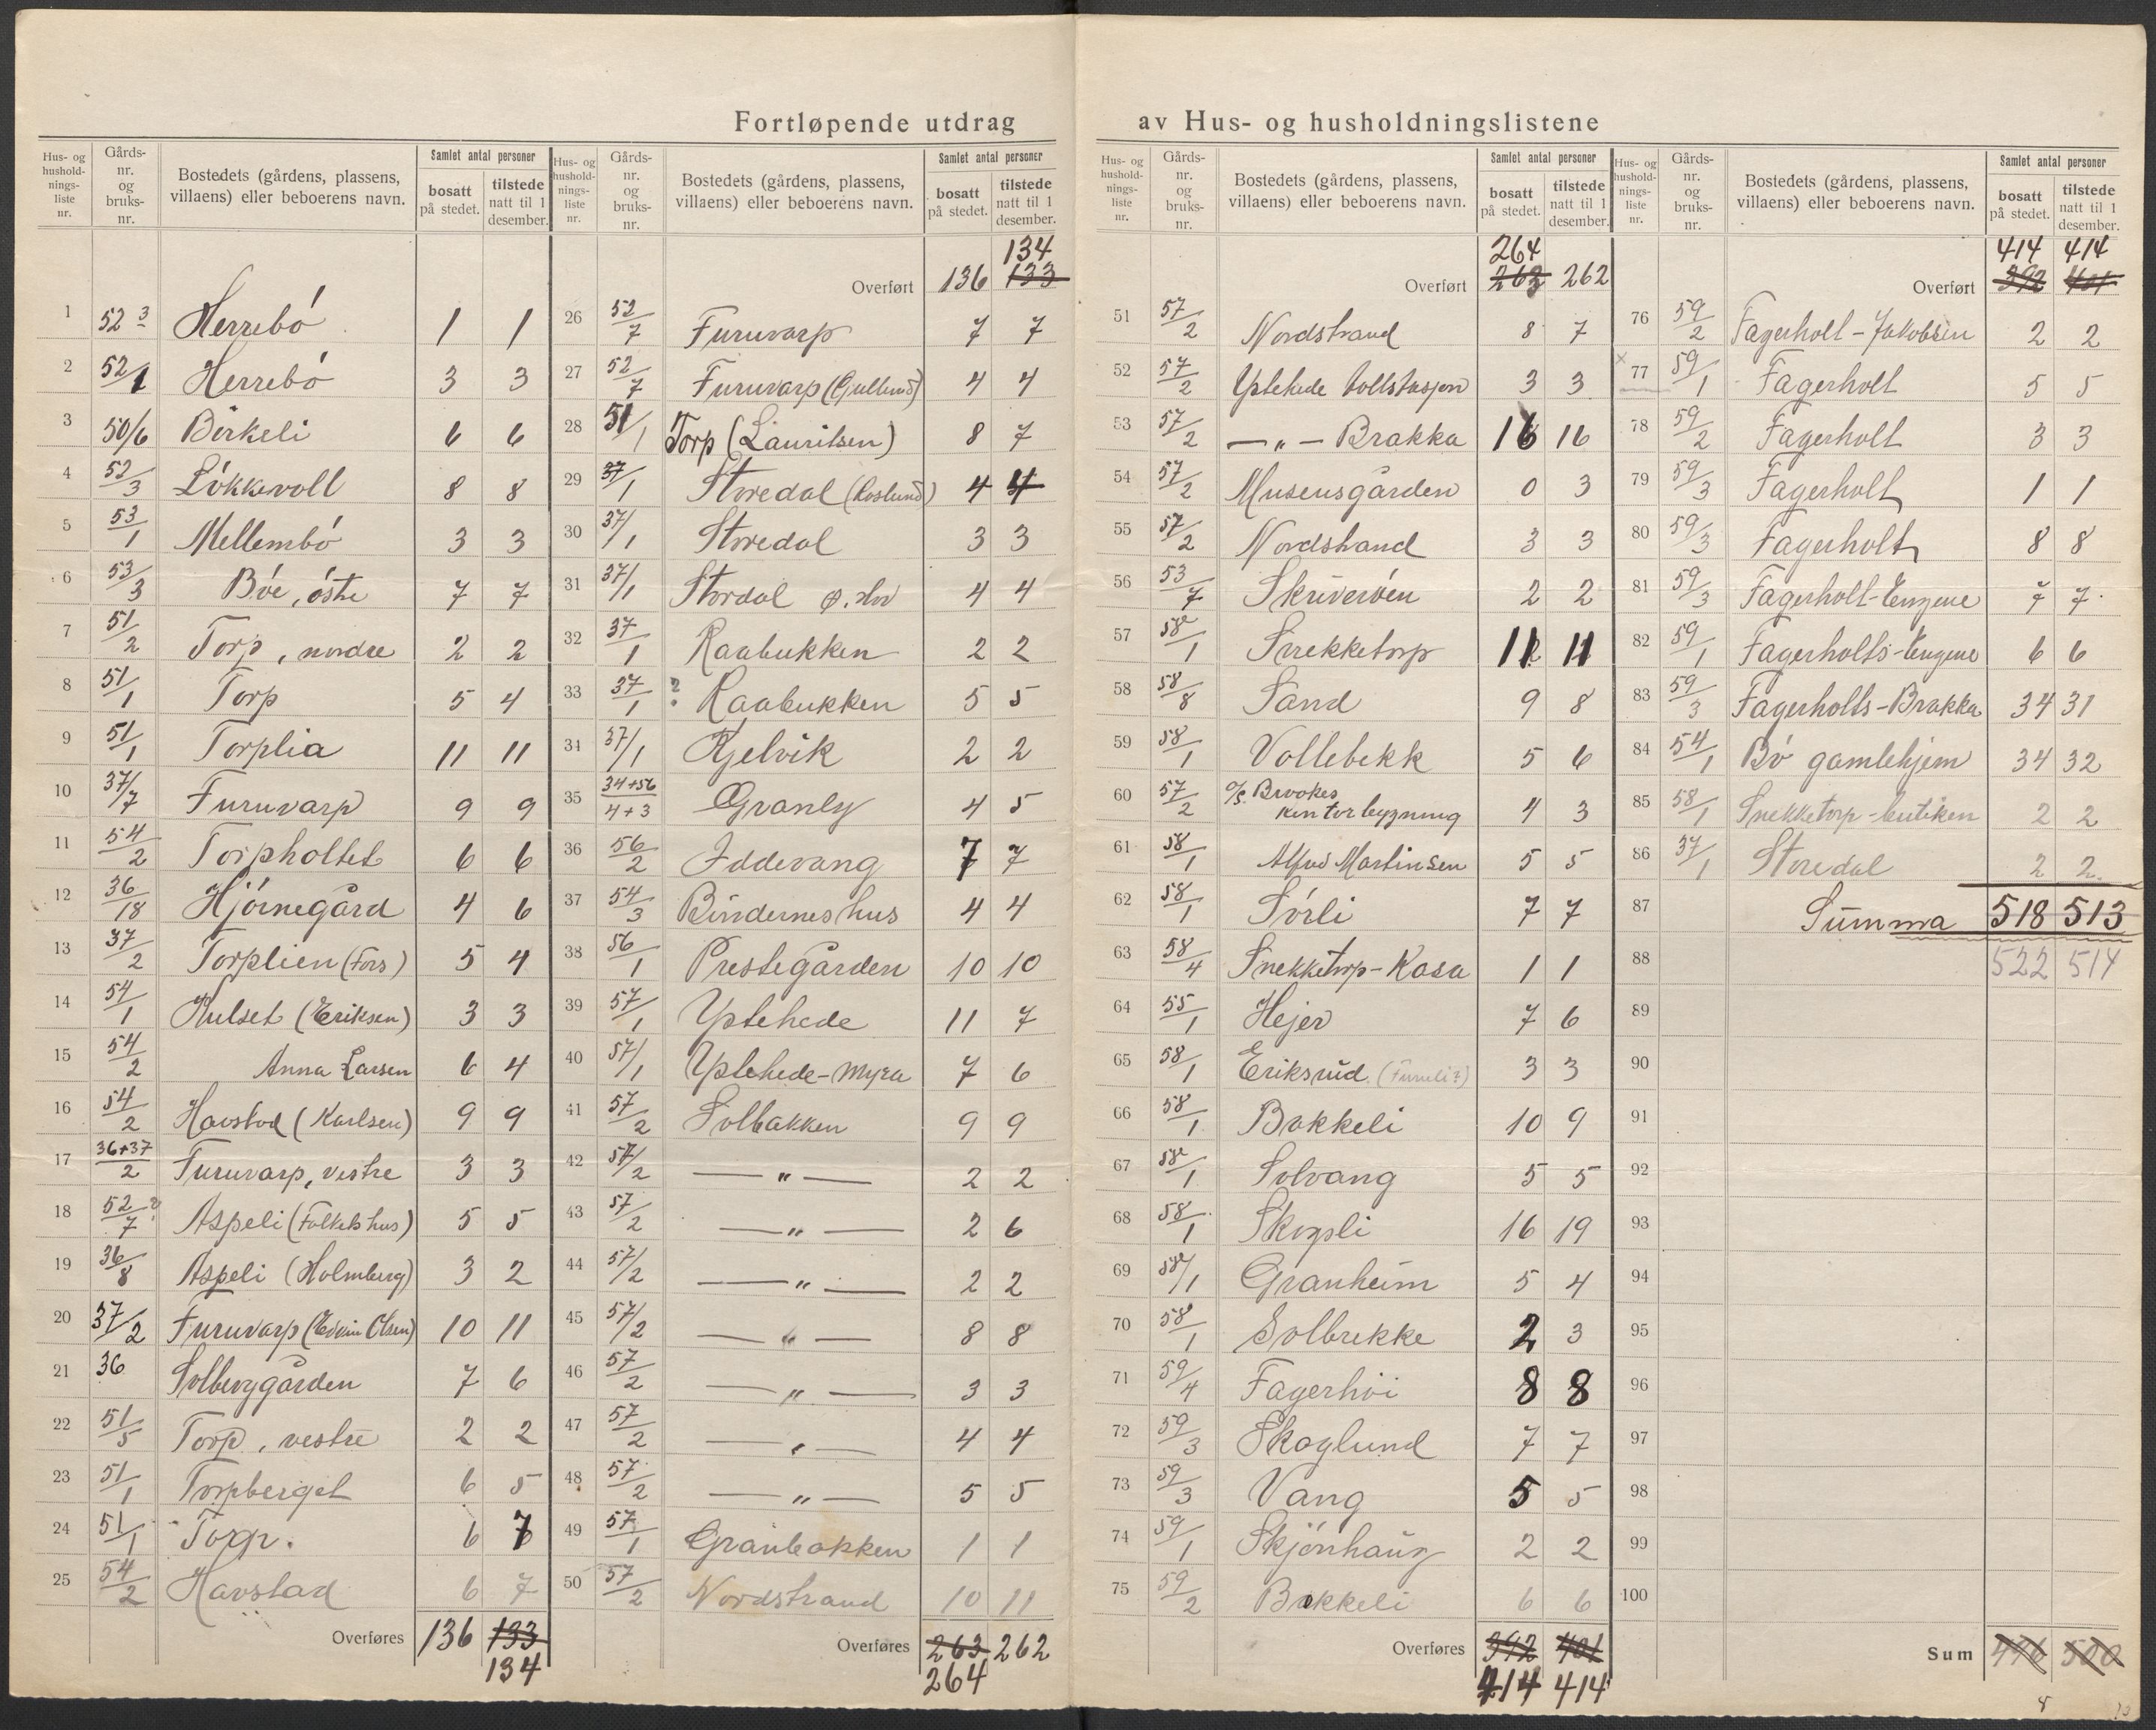 Fortløpende utdrag av Hus- og husholdningslistene
Hus- og husholdningsliste nr. Gårdsnr. og bruksnr. Bostedets (gårdens, plassens, villaens) eller beboerens navn. Samlet antal personer bosatt på stedet. tilstede natt til 1 desember.
1 52 3 Herrebó 1 1
2 52/1 Herrebó 3 3
3 50/6 Birkeli 6 6
4 52/3 Lókkevoll 8 8
5 53/1 Mellembó 3 3
6 53/3 Bóe, óstre 7 7
7 51/2 Torp, nordre 2 2
8 51/1 Torp 5 4
9 51/1 Torplia 11 11
10 37/7 Furuvarp 9 9
11 54/2 Torpholtet 6 6
12 36/18 Hjórnegård 4 6
13 37/2 Torplien (Fors) 5 4
14 54/1 Hulset (Eriksen) 3 3
15 54/2 Anna Larsen 6 4
16 54/2 Havstad (Karlsen) 9 9
17 36+37/2 Furuvarp, vestre 3 3
18 52/7 ? Aspeli (Folkets hus) 5 5
19 36/8 Aspeli (Holmberg) 3 2
20 37/2 Furuvarp (Edvin Olsen) 10 11
21 36 Solberggården 7 6
22 51/5 Torp, vestre 2 2
23 51/1 Torpberget 6 5
24 51/1 Torp. 6 7
25 54/2 Havstad 6 7
Overføres 136 133
134
Hus- og husholdningsliste nr. Gårdsnr. og bruksnr. Bostedets (gårdens, plassens, villaens) eller beboerens navn. Samlet antal personer bosatt på stedet. tilstede natt til 1 desember.
134
Overført 136 133
26 52/7 Furuvarp 7 7
27 52/7 Furuvarp (Gullund) 4 4
28 51/1 Torp (Lauritsen) 8 7
29 37/1 Storedal (Roslund) 4 4
30 37/1 Storedal 3 3
31 37/1 Stordal 4 4
32 37/1 Raabukken 2 2
33 37/1 ? Raabukken 5 5
34 37/1 Kjelvik 2 2
35 34+56/4+3 Granly 4 5
36 56/2 Iddevang 7 7
37 54/3 Bindernes hus 4 4
38 56/1 Prestegården 10 10
39 57/1 Ystehede 11 7
40 57/1 Ystehede-Myra 7 6
41 57/2 Solbakken 9 9
42 57/2 — " — 2 2
43 57/2 — " — 2 6
44 57/2 — " — 2 2
45 57/2 — " — 8 8
46 57/2 — " — 3 3
47 57/2 — " — 4 4
48 57/2 — " — 5 5
49 57/1 Granbakken 1 1
50 57/2 Nordstrand 10 11
Overføres 263 262
264
Hus- og husholdningsliste nr. Gårdsnr. og bruksnr. Bostedets (gårdens, plassens, villaens) eller beboerens navn. Samlet antal personer bosatt på stedet. tilstede natt til 1 desember.
264
Overført 263 262
51 57/2 Nordstrand 8 7
52 57/2 Ystehede tollstasjon 3 3
53 57/2 — " — Brakka 16 16
54 57/2 Musensgården 0 3
55 57/2 Nordstrand 3 3
56 53/7 Skriveróen 2 2
57 58/1 Snekketorp 11 11
58 58/8 Sand 9 8
59 58/1 Vollebekk 5 6
60 57/2 o/s. Brookes
kontorbygning 4 3
61 58/1 Alfred Martinsen 5 5
62 58/1 Sórli 7 7
63 58/4 Snekketorp-Kasa 1 1
64 55/1 Hejer 7 6
65 58/1 Eriksrud (Furuli?) 3 3
66 58/1 Bakkeli 10 9
67 58/1 Solvang 5 5
68 58/1 Skogsli 16 19
69 58/1 Granheim 5 4
70 58/1 Solbrekke 2 3
71 59/4 Fagerhói 8 8
72 59/3 Skoglund 7 7
73 59/3 Vang 5 5
74 59/1 Skjónhaug 2 2
75 59/2 Bakkeli 6 6
Overføres 392 401
414 414
Hus- og husholdningsliste nr. Gårdsnr. og bruksnr. Bostedets (gårdens, plassens, villaens) eller beboerens navn. Samlet antal personer bosatt på stedet. tilstede natt til 1 desember.
414 414
Overført 392 401
76 59/2 Fagerholt-Jakobsen 2 2
x 77 59/1 Fagerholt 5 5
78 59/2 Fagerholt 3 3
79 59/3 Fagerholt 1 1
80 59/3 Fagerholt 8 8
81 59/3 Fagerholt-Engene 7 7
82 59/1 Fagerholts-Engene 6 6
83 59/3 Fagerholts-Brakka 34 31
84 54/1 Bó gamlehjem 34 32
85 58/1 Snekketorp-butiken 2 2
86 37/1 Storedal 2 2
87 Summa 518 513
88 522 514
89
90
91
92
93
94
95
96
97
98
99
100
Sum 496 500
8